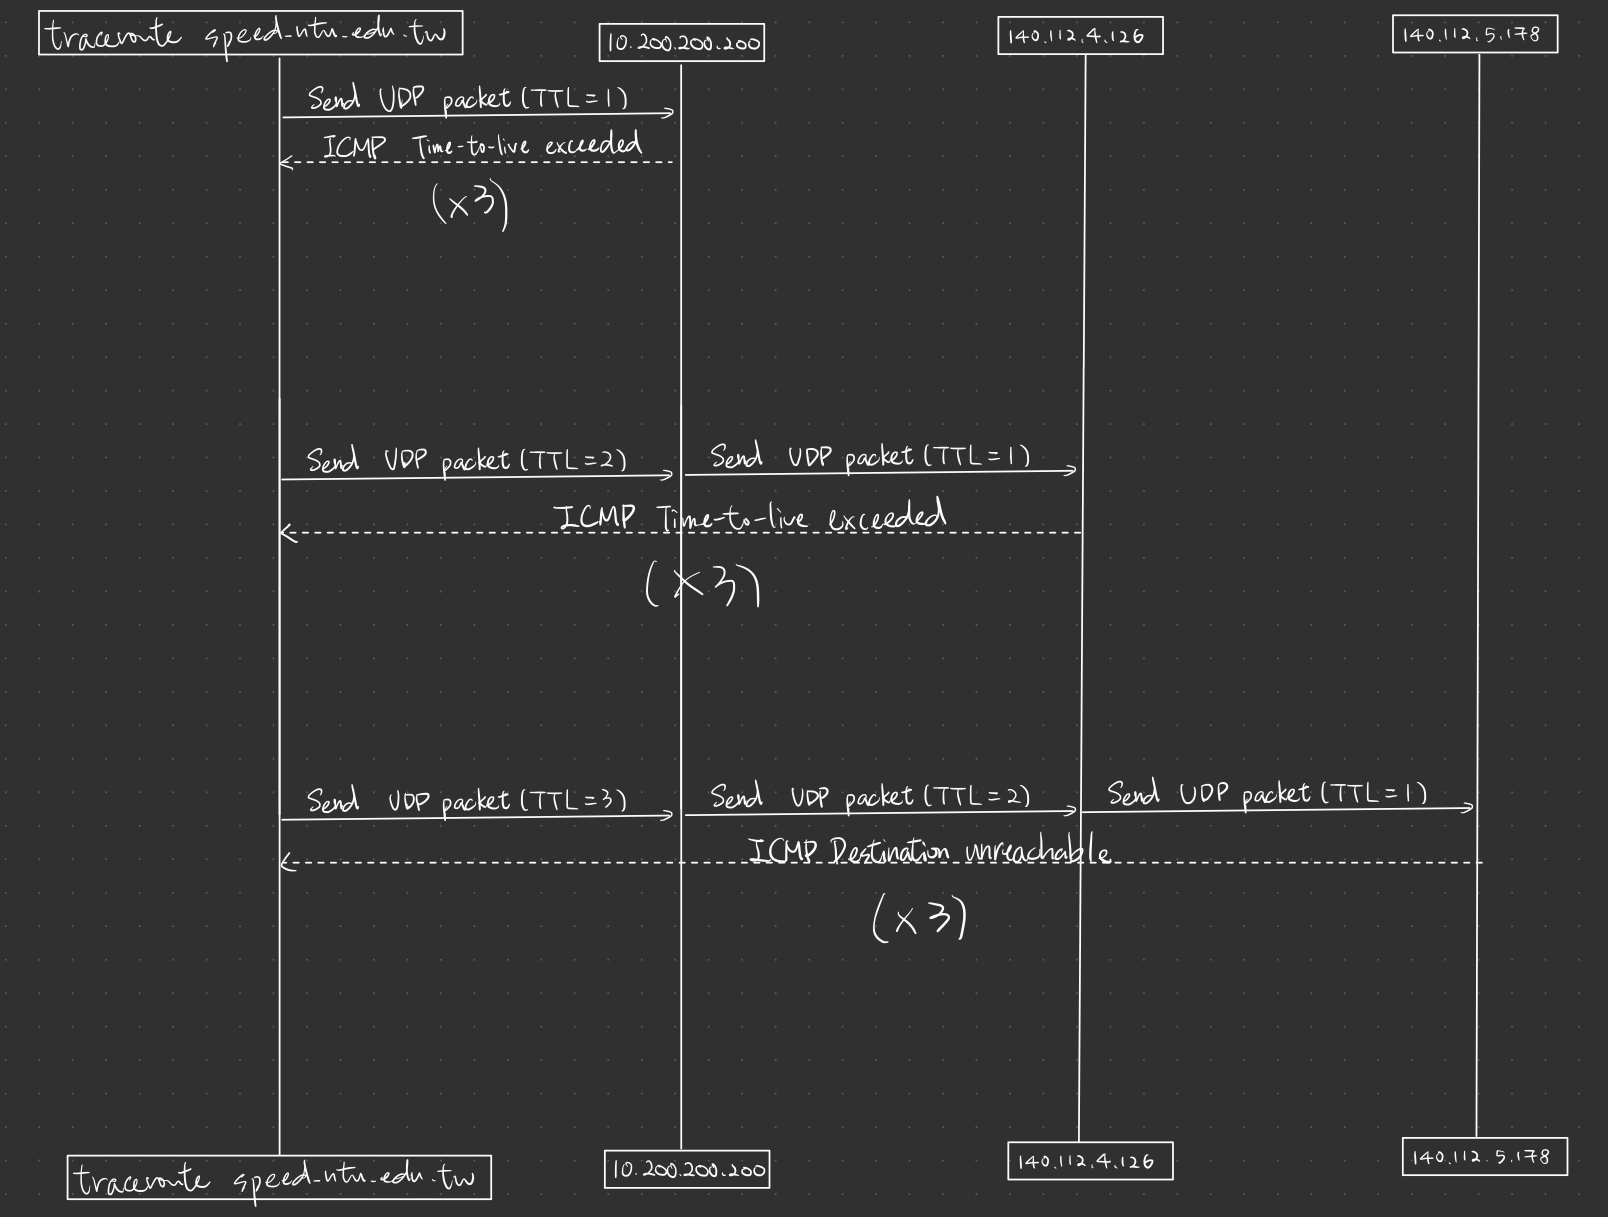 traceroute speed.ntu.edu.tw
10.200.200.200
140.112.4.126
140.112.5.178
Send UDP packet (TTL=1)
ICMP Time-to-live exceeded
(x3)
Send UDP packet (TTL=2)
Send UDP packet (TTL=1)
ICMP Time-to-live exceeded
(x3)
Send UDP packet (TTL=3)
Send UDP packet (TTL=2)
Send UDP packet (TTL=1)
ICMP Destination unreachable
(x3)
traceroute speed.ntu.edu.tw
10.200.200.200
140.112.4.126
140.112.5.178